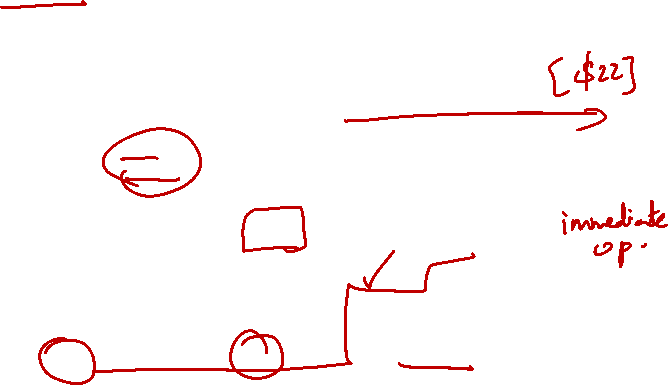 [$22]
immediate
op.